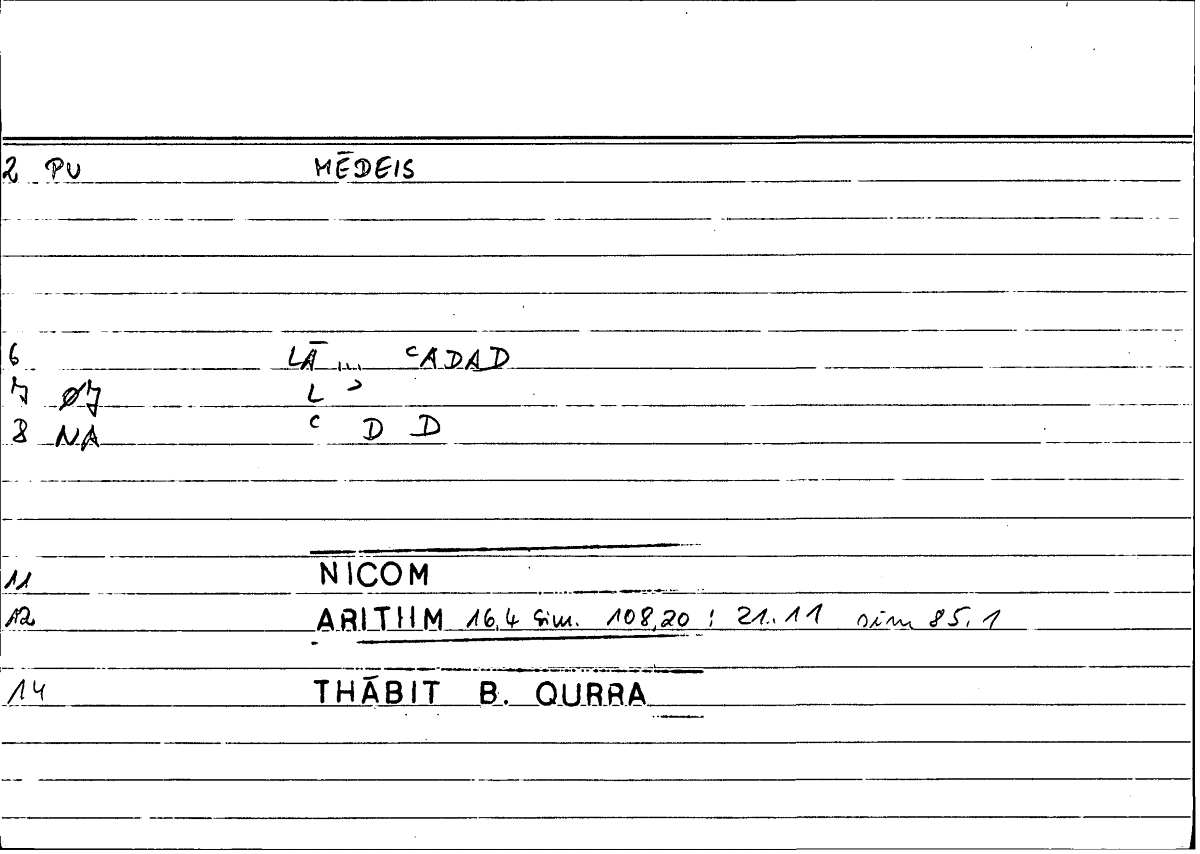 2 PU MĒDEIS
6 LĀ ... ʿADAD
7 ØJ L ʾ
8 NA ʿ D D
11 NICOM
12 ARITHM 16,4 sim. 108,20 ; 21.11 sim 85.1
14 THĀBIT B. QURRA